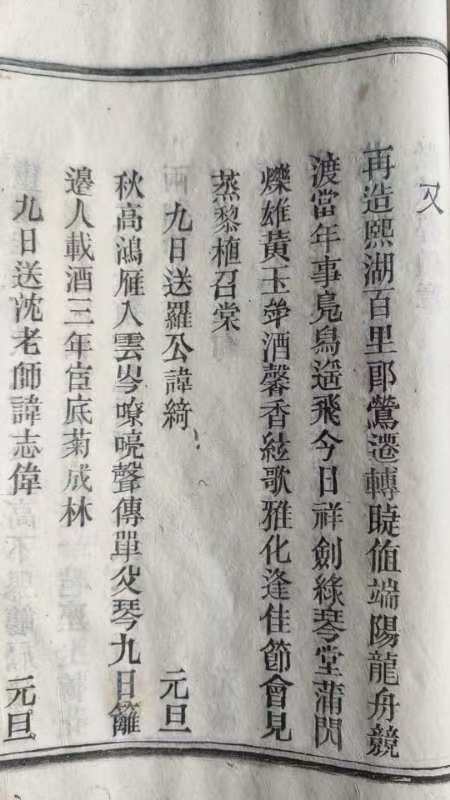 又
再造熙湖百里郎鶯遷轉曉值端陽龍舟競
渡當年事鳧舄遥飛今日祥劍綠琴堂蒲閃
爍雄黄玉斝酒馨香絃歌雅化逢佳節會見
蒸黎植召棠
九日送羅公諱綺 元旦
秋高鴻雁入雲岑嘹唳聲傳單父琴九日籬
邉人載酒三年宦底菊成林
九日送沈老師諱志偉 元旦